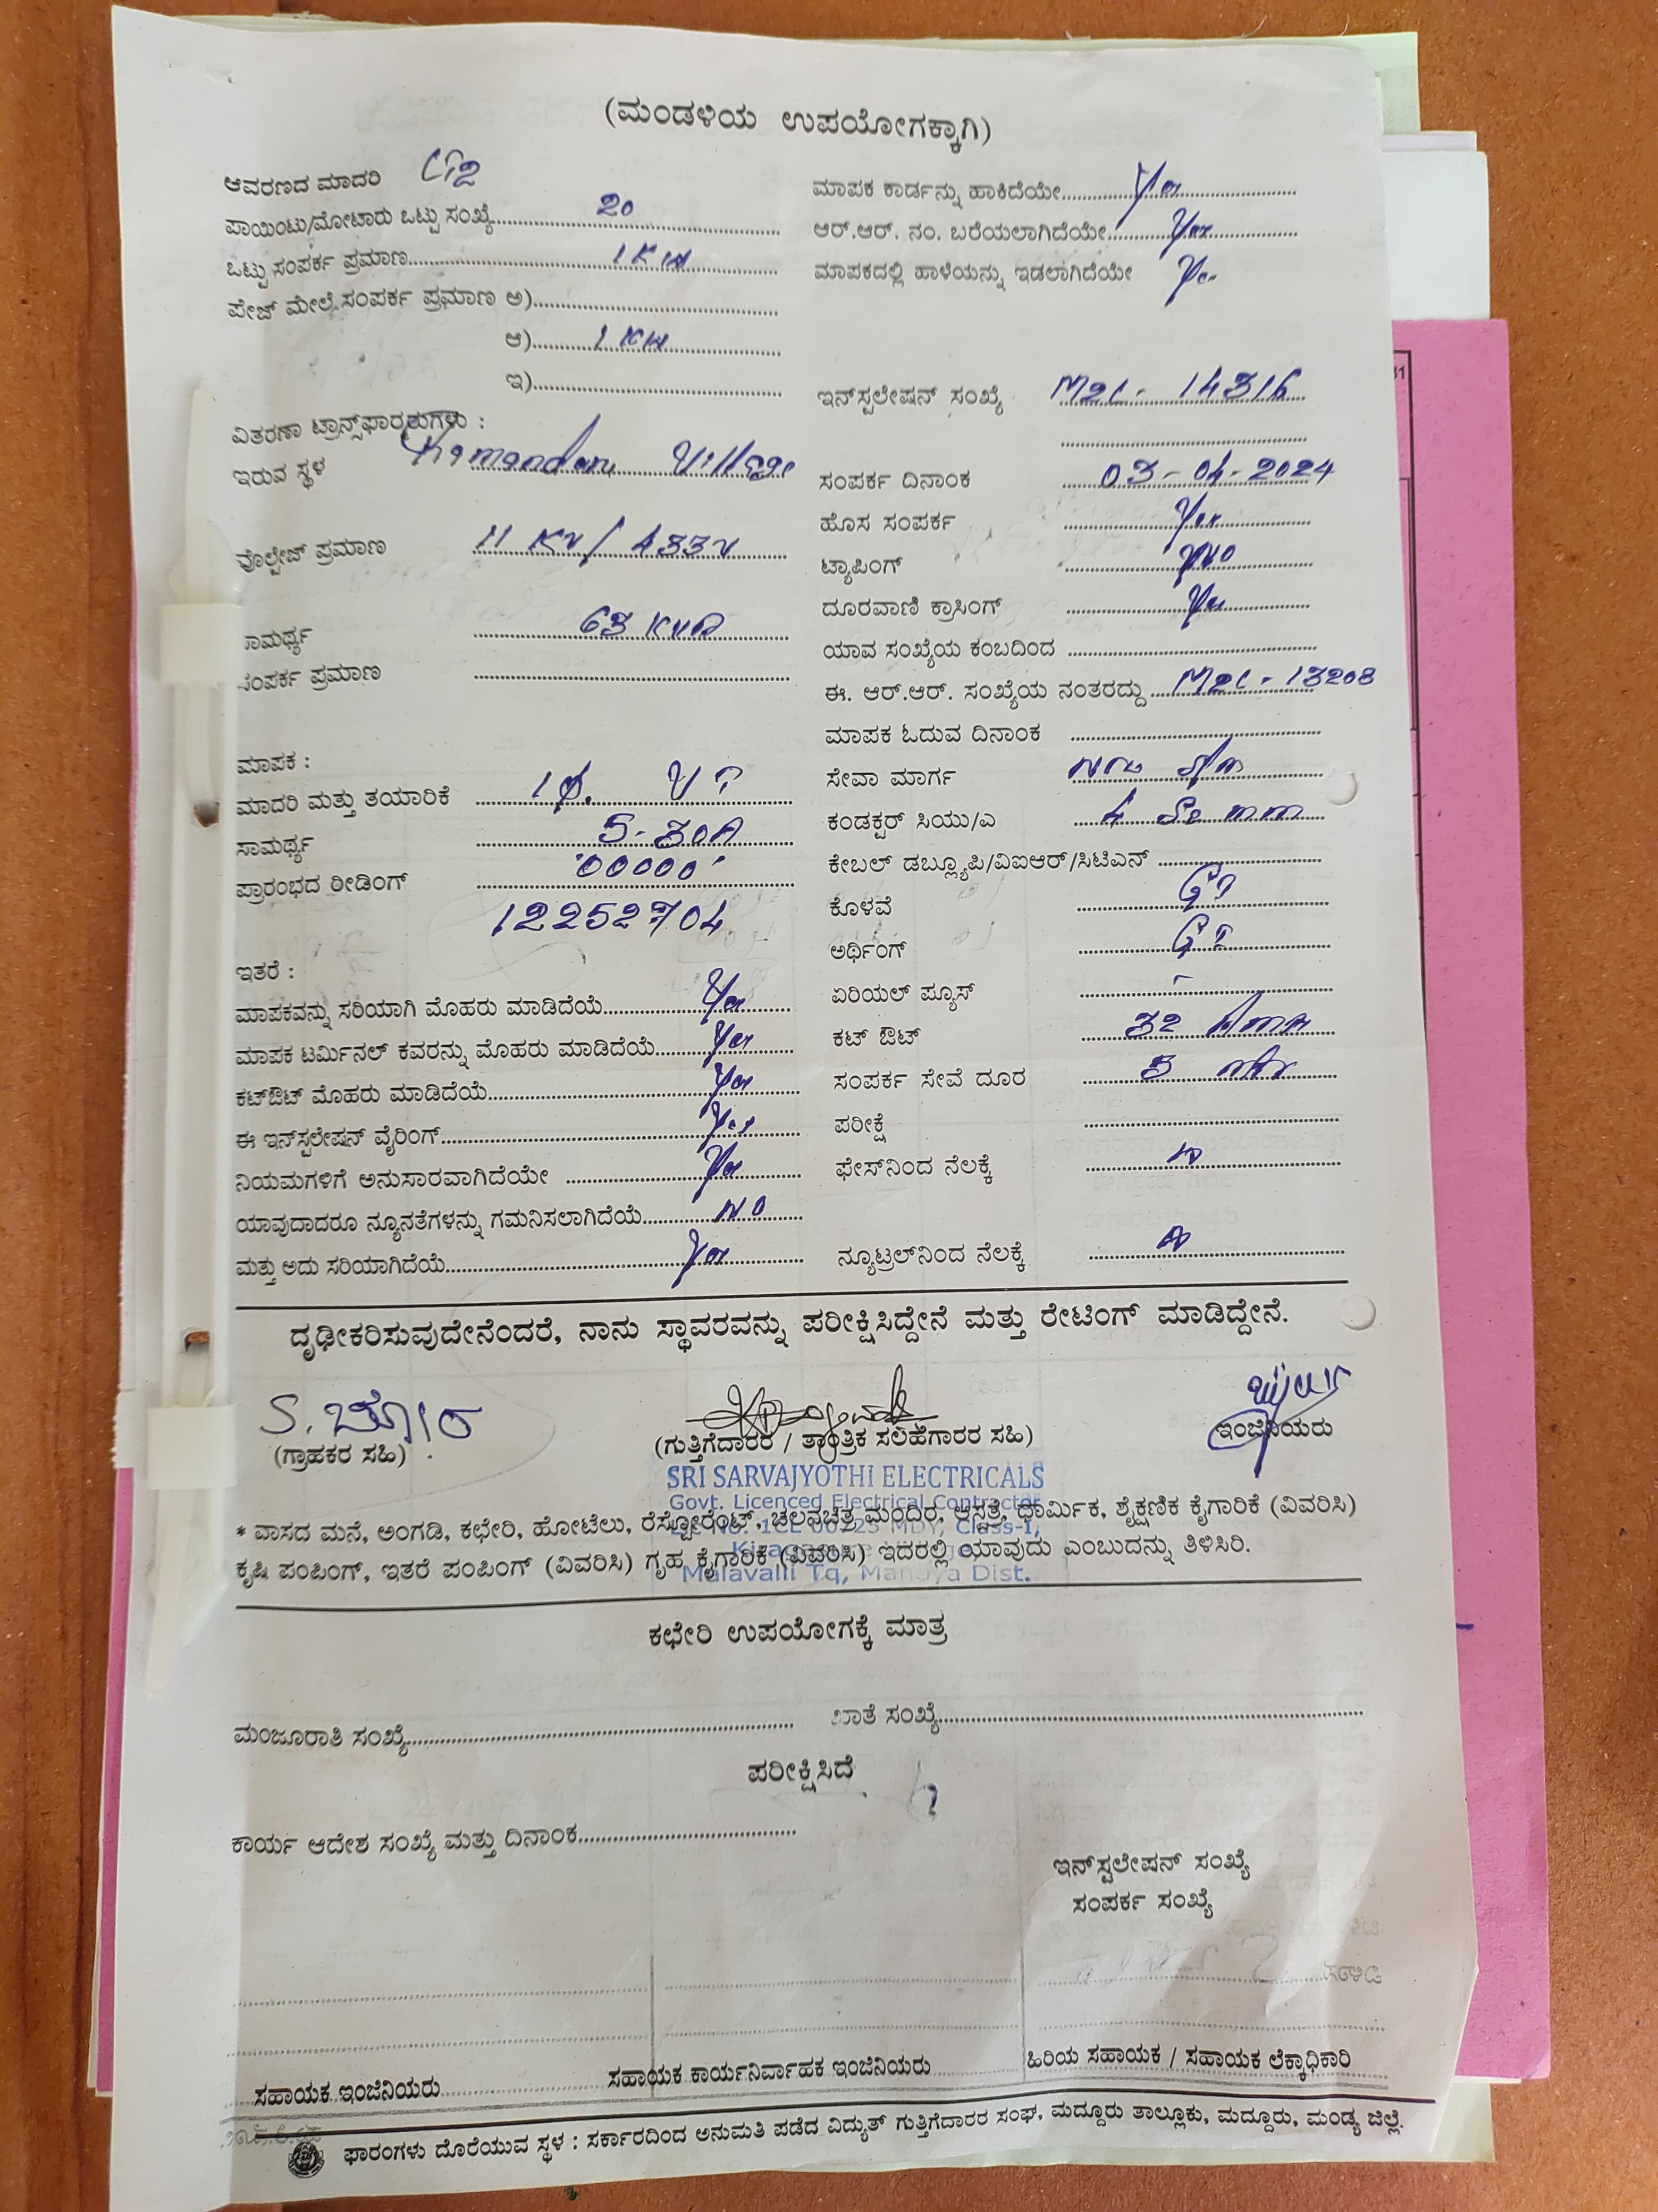 (ಮಂಡಳಿಯ ಉಪಯೋಗಕ್ಕಾಗಿ)
ಆವರಣದ ಮಾದರಿ
ಪಾಯಿಂಟು/ಮೋಟಾರು ಒಟ್ಟು ಸಂಖ್ಯೆ 20
ಒಟ್ಟು ಸಂಪರ್ಕ ಪ್ರಮಾಣ 1 KW
ಪೇಜ್ ಮೇಲೈ ಸಂಪರ್ಕ ಪ್ರಮಾಣ ಅ)
ಆ) 1 KW
ಇ)
ವಿತರಣಾ ಟ್ರಾನ್ಸ್‌ಫಾರ್‍ಮರುಗಳು :
ಇರುವ ಸ್ಥಳ Village
ವೊಲ್ಟೇಜ್ ಪ್ರಮಾಣ 11 KV / 433V
ಸಾಮರ್ಥ್ಯ 63 KVA
ಸಂಪರ್ಕ ಪ್ರಮಾಣ
ಮಾಪಕ :
ಮಾದರಿ ಮತ್ತು ತಯಾರಿಕೆ 1 Ø.
ಸಾಮರ್ಥ್ಯ 5-30A
ಪ್ರಾರಂಭದ ರೀಡಿಂಗ್ '00000'
12252704
ಇತರೆ :
ಮಾಪಕವನ್ನು ಸರಿಯಾಗಿ ಮೊಹರು ಮಾಡಿದೆಯೆ Yes
ಮಾಪಕ ಟರ್ಮಿನಲ್ ಕವರನ್ನು ಮೊಹರು ಮಾಡಿದೆಯೆ Yes
ಕಟ್‌ಔಟ್ ಮೊಹರು ಮಾಡಿದೆಯೆ Yes
ಈ ಇನ್‌ಸ್ಟಲೇಷನ್ ವೈರಿಂಗ್ Yes
ನಿಯಮಗಳಿಗೆ ಅನುಸಾರವಾಗಿದೆಯೇ Yes
ಯಾವುದಾದರೂ ನ್ಯೂನತೆಗಳನ್ನು ಗಮನಿಸಲಾಗಿದೆಯೆ NO
ಮತ್ತು ಅದು ಸರಿಯಾಗಿದೆಯೆ Yes
ಮಾಪಕ ಕಾರ್ಡನ್ನು ಹಾಕಿದೆಯೇ Yes
ಆರ್.ಆರ್. ನಂ. ಬರೆಯಲಾಗಿದೆಯೇ Yes
ಮಾಪಕದಲ್ಲಿ ಹಾಳೆಯನ್ನು ಇಡಲಾಗಿದೆಯೇ Yes
ಇನ್‌ಸ್ಟಲೇಷನ್ ಸಂಖ್ಯೆ M2L- 14316
ಸಂಪರ್ಕ ದಿನಾಂಕ 03-04-2024
ಹೊಸ ಸಂಪರ್ಕ Yes
ಟ್ಯಾಪಿಂಗ್ NO
ದೂರವಾಣಿ ಕ್ರಾಸಿಂಗ್ Yes
ಯಾವ ಸಂಖ್ಯೆಯ ಕಂಬದಿಂದ
ಈ. ಆರ್.ಆರ್. ಸಂಖ್ಯೆಯ ನಂತರದ್ದು M2L-13208
ಮಾಪಕ ಓದುವ ದಿನಾಂಕ
ಸೇವಾ ಮಾರ್ಗ
ಕಂಡಕ್ಟರ್ ಸಿಯು/ಎ 4 mm
ಕೇಬಲ್ ಡಬ್ಲ್ಯೂಪಿ/ವಿಐಆರ್/ಸಿಟಿಎನ್
ಕೊಳವೆ GI
ಅರ್ಥಿಂಗ್ GI
ಏರಿಯಲ್ ಪ್ಯೂಸ್ -
ಕಟ್ ಔಟ್ 32
ಸಂಪರ್ಕ ಸೇವೆ ದೂರ
ಪರೀಕ್ಷೆ
ಫೇಸ್‌ನಿಂದ ನೆಲಕ್ಕೆ
ನ್ಯೂಟ್ರಲ್‌ನಿಂದ ನೆಲಕ್ಕೆ
ದೃಢೀಕರಿಸುವುದೇನೆಂದರೆ, ನಾನು ಸ್ಥಾವರವನ್ನು ಪರೀಕ್ಷಿಸಿದ್ದೇನೆ ಮತ್ತು ರೇಟಿಂಗ್ ಮಾಡಿದ್ದೇನೆ.
(ಗ್ರಾಹಕರ ಸಹಿ)
(ಗುತ್ತಿಗೆದಾರರ / ತಾಂತ್ರಿಕ ಸಲಹೆಗಾರರ ಸಹಿ)
ಇಂಜಿನಿಯರು
SRI SARVAJYOTHI ELECTRICALS
Govt. Licenced Electrical Contractor
MDY, Class-I,
Malavalli Tq, Mandya Dist.
* ವಾಸದ ಮನೆ, ಅಂಗಡಿ, ಕಛೇರಿ, ಹೋಟೆಲು, ರೆಸ್ಟೋರೆಂಟ್, ಚಲನಚಿತ್ರ ಮಂದಿರ, ಆಸ್ಪತ್ರೆ, ಧಾರ್ಮಿಕ, ಶೈಕ್ಷಣಿಕ ಕೈಗಾರಿಕೆ (ವಿವರಿಸಿ)
ಕೃಷಿ ಪಂಪಿಂಗ್, ಇತರೆ ಪಂಪಿಂಗ್ (ವಿವರಿಸಿ) ಗೃಹ ಕೈಗಾರಿಕೆ (ವಿವರಿಸಿ) ಇದರಲ್ಲಿ ಯಾವುದು ಎಂಬುದನ್ನು ತಿಳಿಸಿರಿ.
ಕಛೇರಿ ಉಪಯೋಗಕ್ಕೆ ಮಾತ್ರ
ಮಂಜೂರಾತಿ ಸಂಖ್ಯೆ
ಖಾತೆ ಸಂಖ್ಯೆ
ಪರೀಕ್ಷಿಸಿದೆ
ಕಾರ್ಯ ಆದೇಶ ಸಂಖ್ಯೆ ಮತ್ತು ದಿನಾಂಕ
ಇನ್‌ಸ್ಟಲೇಷನ್ ಸಂಖ್ಯೆ
ಸಂಪರ್ಕ ಸಂಖ್ಯೆ
ಸಹಾಯಕ ಇಂಜಿನಿಯರು
ಸಹಾಯಕ ಕಾರ್ಯನಿರ್ವಾಹಕ ಇಂಜಿನಿಯರು
ಹಿರಿಯ ಸಹಾಯಕ / ಸಹಾಯಕ ಲೆಕ್ಕಾಧಿಕಾರಿ
ಫಾರಂಗಳು ದೊರೆಯುವ ಸ್ಥಳ : ಸರ್ಕಾರದಿಂದ ಅನುಮತಿ ಪಡೆದ ವಿದ್ಯುತ್ ಗುತ್ತಿಗೆದಾರರ ಸಂಘ, ಮದ್ದೂರು ತಾಲ್ಲೂಕು, ಮದ್ದೂರು, ಮಂಡ್ಯ ಜಿಲ್ಲೆ.